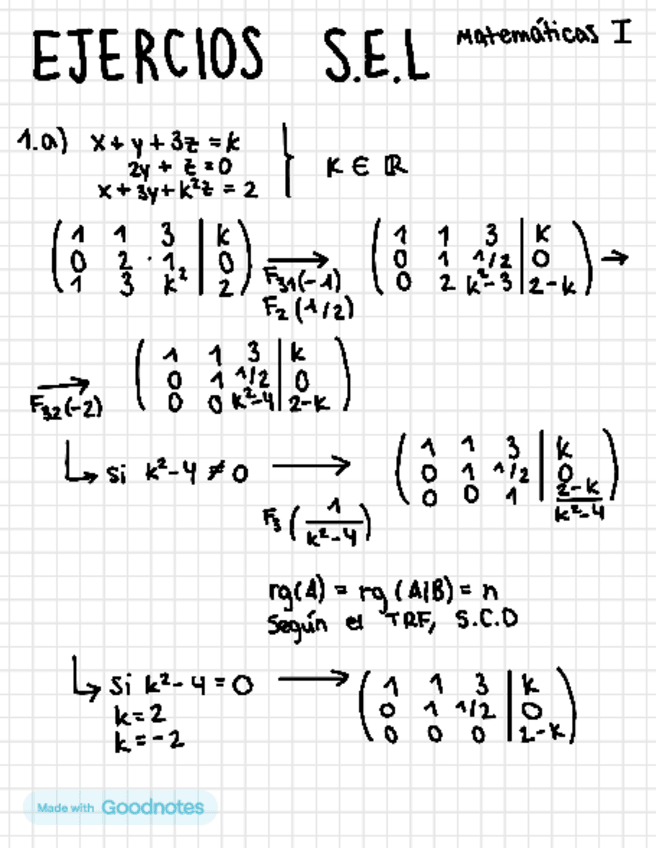 EJERCIOS S.E.L Matemáticas I
1.a) x + y + 3z = k
2y + z = 0
x + 3y + k²z = 2
} K ∈ ℝ
( 1 1 3 | k
0 2 · 1 | 0
1 3 k² | 2 )
→
F₃₁(-1)
F₂(1/2)
( 1 1 3 | k
0 1 1/2 | 0
0 2 k²-3 | 2-k ) →
→
F₃₂(-2)
( 1 1 3 | k
0 1 1/2 | 0
0 0 k²-4 | 2-k )
↳ Si k²-4 ≠ 0 →
F₃ ( 1/(k²-4) )
( 1 1 3 | k
0 1 1/2 | 0
0 0 1 | (2-k)/(k²-4) )
rg(A) = rg (A|B) = n
Según el TRF, S.C.D
↳ Si k²-4 = 0 →
k = 2
k = -2
( 1 1 3 | k
0 1 1/2 | 0
0 0 0 | 2-k )
Made with Goodnotes